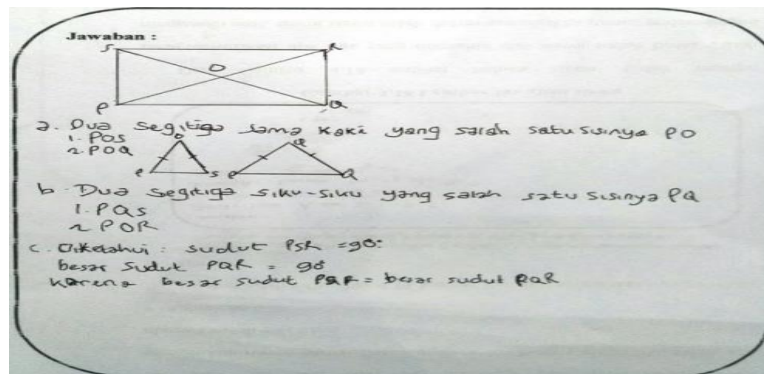 Jawaban :
S R
O
P Q
a. Dua segitiga sama kaki yang salah satu sisinya PO
1. POS
2. POQ
P S P Q
b. Dua segitiga siku-siku yang salah satu sisinya PQ
1. PQS
2. PQR
c. Diketahui : sudut PSR = 90°
besar sudut PQR = 90°
karena besar sudut = besar sudut PQR